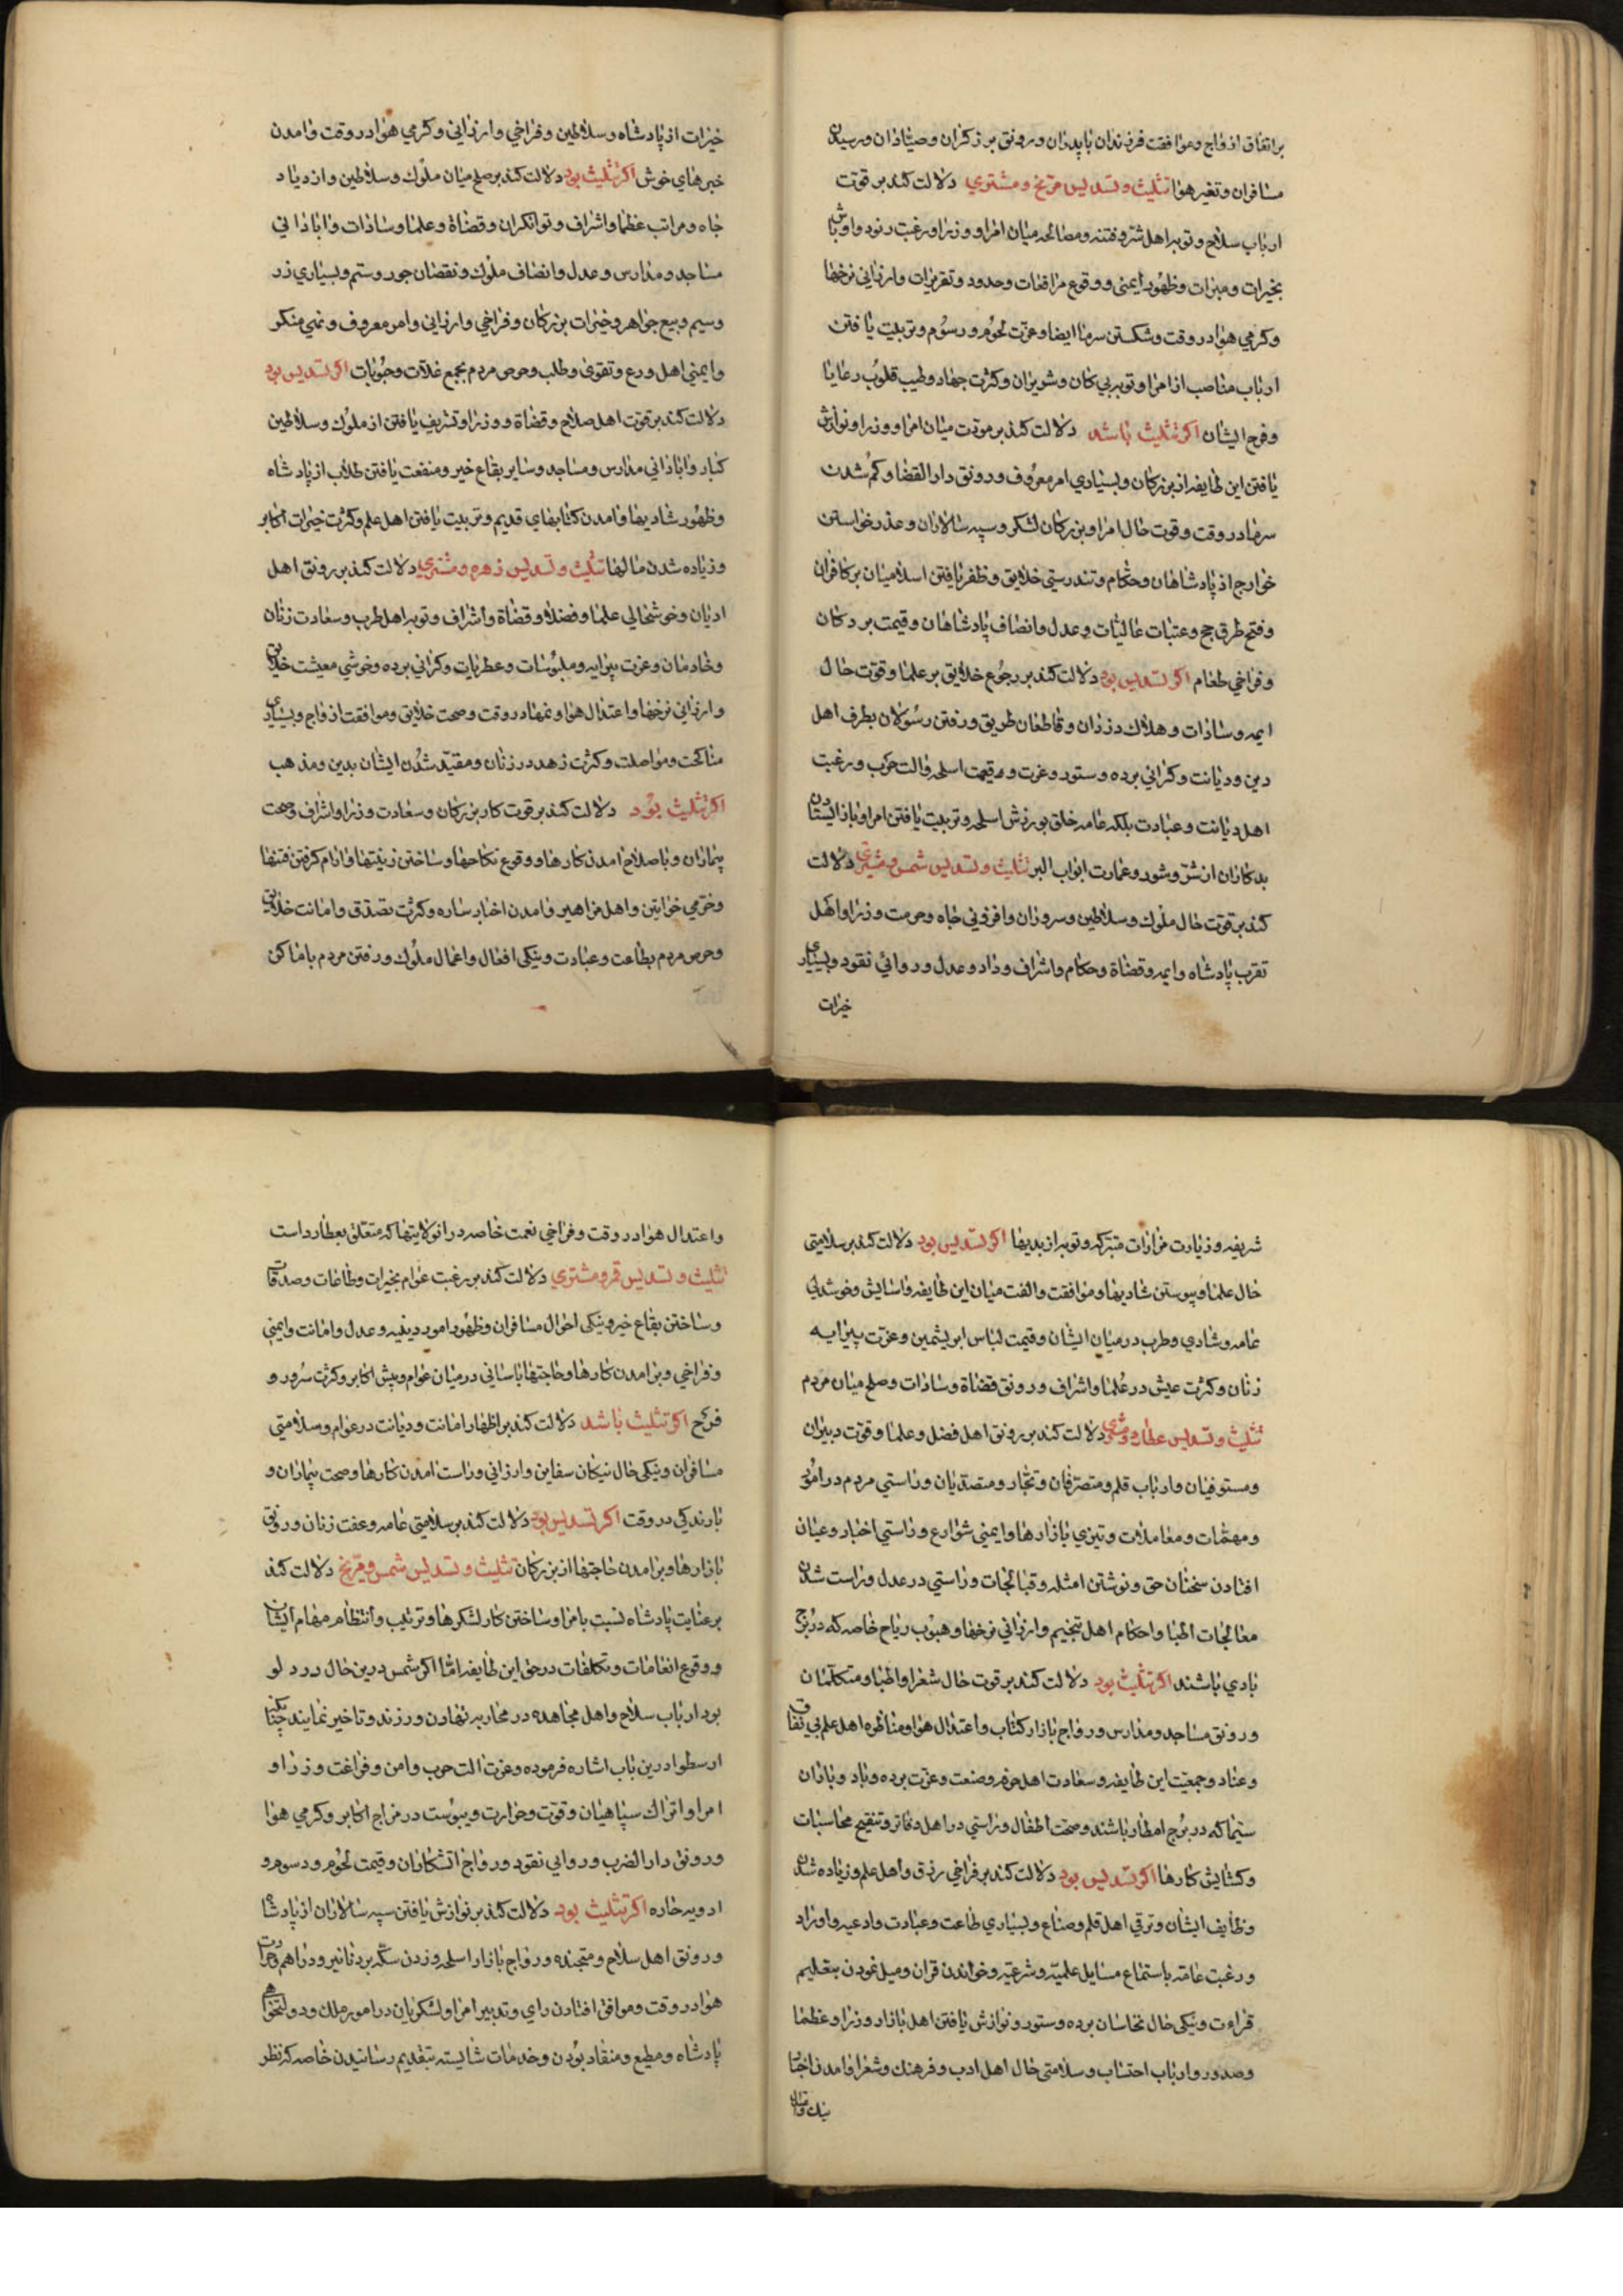 بر اتفاق ازواج و موافقت فرزندان با پدران و رونق برزکران و صیادان و رسیدن
مسافران و تغیر هوا تثلیث و تسدیس مریخ و مشتری دلالت کند بر قوت
ارباب سلاح و توبه اهل شر و فتنه و مصالحه میان امرا و وزرا و رغبت رنود و اوباش
بخیرات و مبرات و ظهور ایمنی و وقوع مرافعات و حدود و تقریرات و ارزانی نرخها
و کرمی هوا در وقت و شکستن سرما ایضا و عزت لحوم و رسوم و تربیت یافتن
ارباب مناصب از امرا و توبه بی کان و شریران و کثرت جهاد و طیب قلوب رعایا
و فرح ایشان اکر تثلیث باشد دلالت کند بر مودت میان امرا و وزرا و نوازش
یافتن این طایفه از بزرکان و بسیاری امر معروف و رونق دار القضا و کم شدن
سرما در وقت و قوت حال امرا و بزرکان لشکر و سپه سالاران و عذر خواستن
خوارج از پادشاهان و حکام و تندرستی خلایق و ظفر یافتن اسلامیان بر کافران
و فتح طرق حج و عتبات عالیات و عدل و انصاف پادشاهان و قیمت بردکان
و فراخی طعام اکر تسدیس بود دلالت کند بر رجوع خلایق بر علما و قوت حال
ایمه و سادات و هلاک دزدان و قاطعان طریق و رفتن رسولان بطرف اهل
دین و دیانت و کرانی برده و ستور و عزت و قیمت اسلحه و الت حرب و رغبت
اهل دیانت و عبادت بلکه عامه خلق بورزش اسلحه و تربیت یافتن امرا و باز ایستادن
بدکاران از شر و شور و عمارت ابواب البر تثلیث و تسدیس شمس و مشتری دلالت
کند بر قوت حال ملوک و سلاطین و سروران و افزونی جاه و حرمت وزرا و اهل
تقرب پادشاه و ایمه و قضاة و حکام و اشراف و داد و عدل و روائی نقود و بسیاری
خیرات
خیرات از پادشاه و سلاطین و فراخی و ارزانی و کرمی هوا در وقت و امدن
خبرهای خوش اکر تثلیث بود دلالت کند بر صلح میان ملوک و سلاطین و ازدیاد
جاه و مراتب عظما و اشراف و توانکران و قضاة و علما و سادات و ابادانی
مساجد و مدارس و عدل و انصاف ملوک و نقصان جور و ستم و بسیاری زر
و سیم و بیع جواهر و خیرات بزرکان و فراخی و ارزانی و امر معروف و نهی منکر
و ایمنی اهل ورع و تقوی و طلب و حرص مردم بجمع غلات و حبوبات اکر تسدیس بود
دلالت کند بر قوت اهل صلاح و قضاة و وزرا و تشریف یافتن از ملوک و سلاطین
کبار و ابادانی مدارس و مساجد و سایر بقاع خیر و منفعت یافتن طلاب از پادشاه
و ظهور شادیها و امدن کتابهای قدیم و تربیت یافتن اهل علم و کثرت خیرات اکابر
و زیاده شدن مالها تثلیث و تسدیس زهره و مشتری دلالت کند بر رونق اهل
ادیان و خوشحالی علما و فضلا و قضاة و اشراف و توبه اهل طرب و سعادت زنان
و خادمان و عزت پیرایه و ملبوسات و عطریات و کرانی برده و خوشی معیشت خلایق
و ارزانی نرخها و اعتدال هوا و نمها در وقت و صحت خلایق و موافقت ازواج و بسیاری
مناکحت و مواصلت و کثرت زهد در زنان و مقید شدن ایشان بدین و مذهب
اکر تثلیث بود دلالت کند بر قوت کار بزرکان و سعادت وزرا و اشراف و صحت
بیماران و باصلاح امدن کارها و وقوع نکاحها و ساختن زینتها و ارام کرفتن فتنها
و خرمی خواتین و اهل مزاهیر و امدن اخبار ساره و کثرت تصدق و امانت خلایق
و حرص مردم بطاعت و عبادت و نیکی افعال و اعمال ملوک و رفتن مردم باماکن
شریفه و زیارت مزارات متبرکه و توبه از بدیها اکر تسدیس بود دلالت کند بر سلامتی
حال علما و پیوستن شادیها و موافقت و الفت میان این طایفه و اسایش و خوشدلی
عامه و شادی و طرب در میان ایشان و قیمت لباس ابریشمین و عزت پیرایه
زنان و کثرت عیش در علما و اشراف و رونق قضاة و سادات و صلح میان مردم
تثلیث و تسدیس عطارد و مشتری دلالت کند بر رونق اهل فضل و علما و قوت دبیران
و مستوفیان و ارباب قلم و متصرفان و تجار و متصدیان و راستی مردم در امور
و مهمات و معاملات و تیزی بازارها و ایمنی شوارع و راستی اخبار و عیان
افتادن سخنان حق و نوشتن امثله و قبالجات و راستی در عدل و راست شدن
معالجات اطبا و احکام اهل تنجیم و ارزانی نرخها و هبوب ریاح خاصه که در برج
بادی باشند اکر تثلیث بود دلالت کند بر قوت حال شعرا و اطبا و متکلمان
و رونق مساجد و مدارس و رواج بازار کتاب و اعتدال هوا و مناظره اهل علم بی نفاق
و عناد و جمعیت این طایفه و سعادت اهل حرفه و صنعت و عزت برده و باد و باران
سیما که در برج امطار باشند و صحت اطفال و راستی در اهل دفاتر و تنقیح محاسبات
و کشایش کارها اکر تسدیس بود دلالت کند بر فراخی رزق و اهل علم و زیاده شدن
وظایف ایشان و ترقی اهل قلم و صناع و بسیاری طاعت و عبادت و ادعیه و اوراد
و رغبت عامه باستماع مسایل علمیه و شرعیه و خواندن قران و میل نمودن بتعلیم
قراءت و نیکی حال نخاسان برده و ستور و نوازش یافتن اهل بازار و وزرا و عظما
و صدور و ارباب احتساب و سلامتی حال اهل ادب و فرهنک و شعرا و امدن اخبار
نیک و
و اعتدال هوا در وقت و فراخی نعمت خاصه در انولایتها که متعلق بعطارد است
تثلیث و تسدیس قمر و مشتری دلالت کند بر رغبت عوام بخیرات و طاعات و صدقات
و ساختن بقاع خیر و نیکی احوال مسافران و ظهور امور دینیه و عدل و امانت و ایمنی
و فراخی و برامدن کارها و حاجتها باسانی در میان عوام و پیش اکابر و کثرت سرور و
فرح اکر تثلیث باشد دلالت کند بر اظهار امانت و دیانت در عوام و سلامتی
مسافران و نیکی حال نیکان سفاین و ارزانی و راست امدن کارها و صحت بیماران و
بارندکی در وقت اکر تسدیس بود دلالت کند بر سلامتی عامه و عفت زنان و رونق
بازارها و برامدن حاجتها از بزرکان تثلیث و تسدیس شمس و مریخ دلالت کند
بر عنایت پادشاه نسبت بامرا و ساختن کار لشکرها و ترتیب و انتظام مهام ایشان
و وقوع انعامات و تکلفات در حق این طایفه اما اکر شمس درین حال در دلو
بود ارباب سلاح و اهل مجاهده در محاربه تهاون ورزند و تاخیر نمایند چنانکه
ارسطو درین باب اشاره فرموده و عزت الت حرب و امن و فراغت وزرا و
امرا و اتراک سپاهیان و قوت و حرارت و یبوست در مزاج اکابر و کرمی هوا
و رونق دار الضرب و روایی نقود و رواج اتشکاران و قیمت لحوم و دسوم و
ادویه حاره اکر تثلیث بود دلالت کند بر نوازش یافتن سپه سالاران از پادشاه
و رونق اهل سلاح و متجنده و رواج بازار اسلحه و زدن سکه بر دنانیر و دراهم و حرارت
هوا در وقت و موافق افتادن رای و تدبیر امرا و لشکریان در امور ملک و دولتخواهی
پادشاه و مطیع و منقاد بودن و خدمات شایسته بتقدیم رسانیدن خاصه که نظر